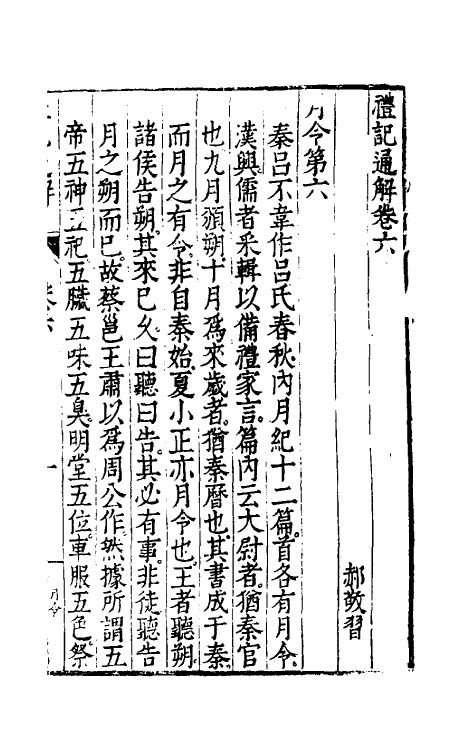 禮記通解卷六
郝敬習
月令第六
秦呂不韋作呂氏春秋内月紀十二篇首各有月令
漢興儒者釆輯以備禮家言篇内云大尉者猶秦官
也九月頒朔十月爲來歲者猶秦曆也其書成于秦
而月之有令非自秦始夏小正亦月令也王者聽朔
諸侯告朔其來已久曰聽曰告其必有事非徒聽告
月之朔而已故蔡邕王肅以爲周公作然據所謂五
帝五神五祀五臟五味五臭明堂五位車服五色祭
卷六
一
月令